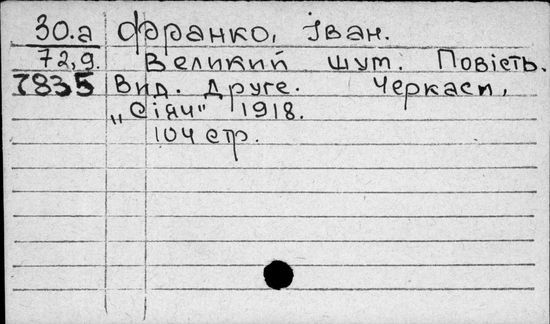 30.а Франко, Іван.
72,9. Великий шут. Повість.
7835 Вид. Друге. Черкаси,
„Сіяч" 1918.
104 стр.